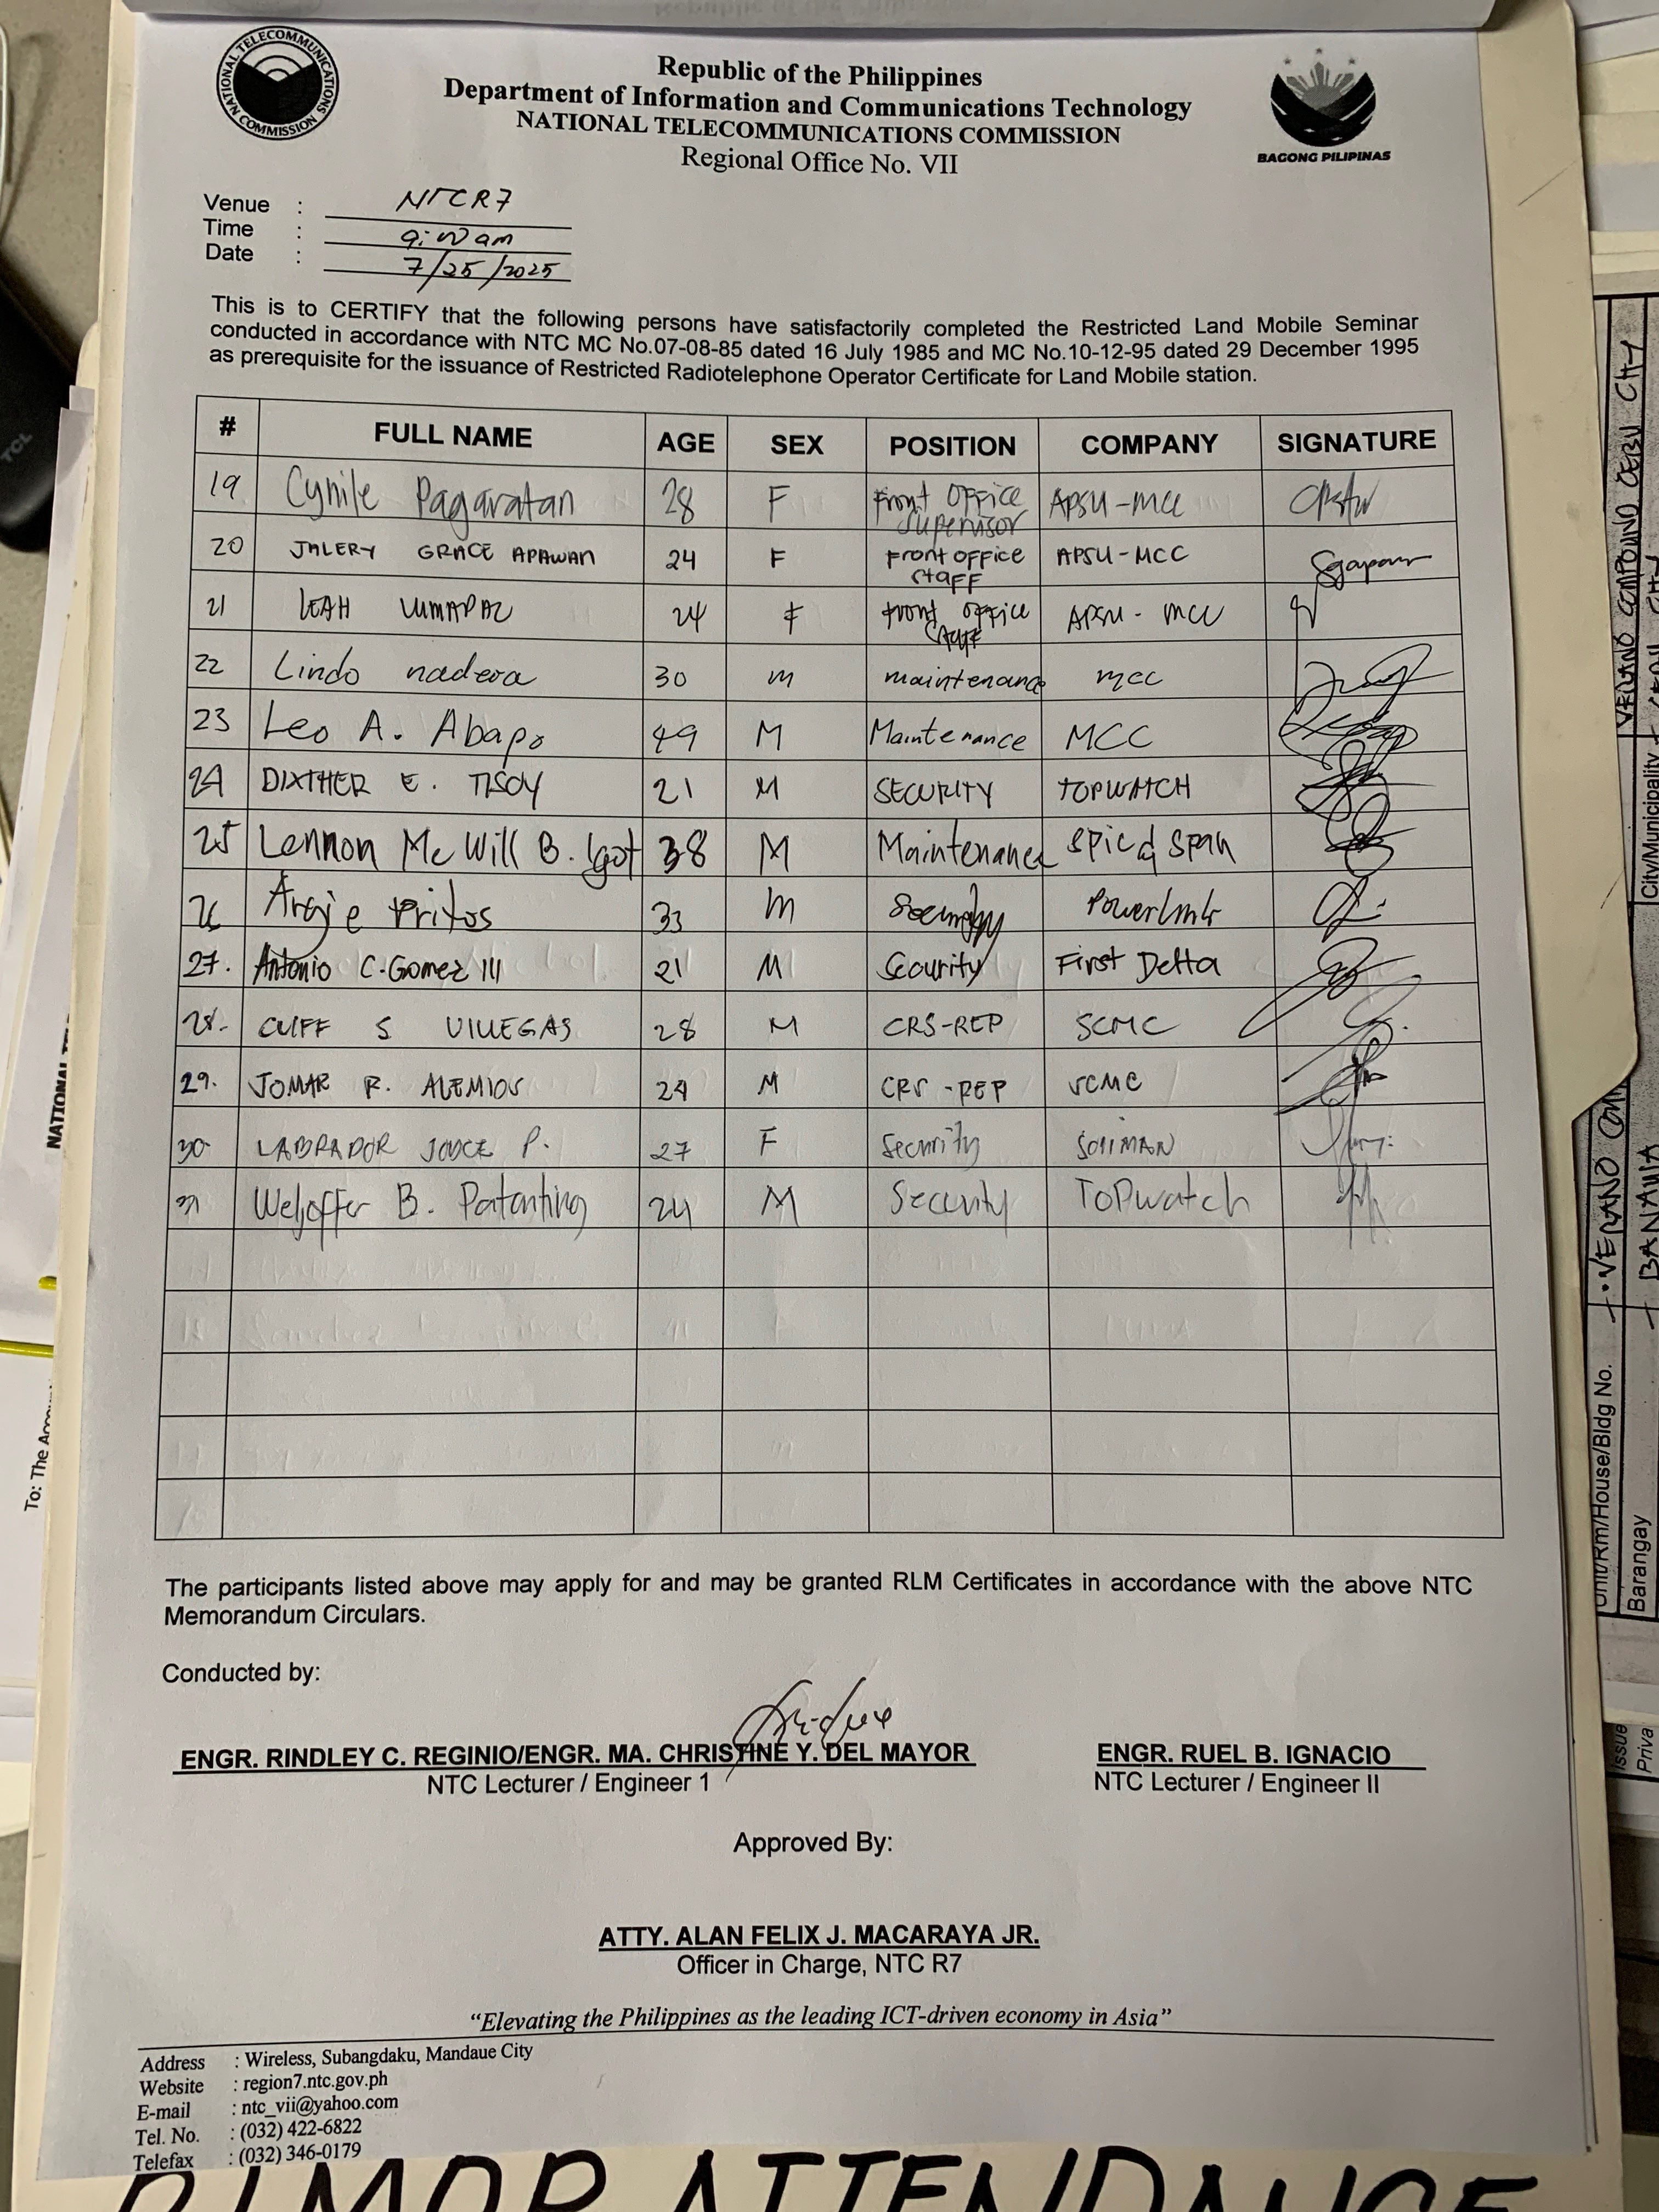 NATIONAL TELECOMMUNICATIONS COMMISSION
Republic of the Philippines
Department of Information and Communications Technology
NATIONAL TELECOMMUNICATIONS COMMISSION
Regional Office No. VII
BAGONG PILIPINAS
Venue : NTCR7
Time : 9:00 am
Date : 7/25/2025
This is to CERTIFY that the following persons have satisfactorily completed the Restricted Land Mobile Seminar
conducted in accordance with NTC MC No.07-08-85 dated 16 July 1985 and MC No.10-12-95 dated 29 December 1995
as prerequisite for the issuance of Restricted Radiotelephone Operator Certificate for Land Mobile station.
# FULL NAME AGE SEX POSITION COMPANY SIGNATURE
19 Cynile Pagaratan 28 F Front Office Supervisor APSU-MCC
20 JALERY GRACE APAWAN 24 F Front Office Staff APSU-MCC
21 LEAH LUMAPAZ 24 F Front Office Staff APSU-MCC
22 Lindo nadera 30 m maintenance mcc
23 Leo A. Abapo 49 M Maintenance MCC
24 DIXTHER E. TISOY 21 M SECURITY TOPWATCH
25 Lennon Mc Will B. Igot 38 M Maintenance Spic & Span
26 Argie Pritos 33 m Security
27. Antonio C. Gomez III 21 M Security First Delta
28. CLIFF S VILLEGAS 28 M CRS-REP SCMC
29. JOMAR R. ALEMIOS 24 M CRS-REP SCMC
30 LABRADOR JOYCE P. 27 F Security SOLIMAN
31 Weljoffer B. Patanting 24 M Security TOPwatch
The participants listed above may apply for and may be granted RLM Certificates in accordance with the above NTC
Memorandum Circulars.
Conducted by:
ENGR. RINDLEY C. REGINIO/ENGR. MA. CHRISTINE Y. DEL MAYOR
NTC Lecturer / Engineer 1
ENGR. RUEL B. IGNACIO
NTC Lecturer / Engineer II
Approved By:
ATTY. ALAN FELIX J. MACARAYA JR.
Officer in Charge, NTC R7
“Elevating the Philippines as the leading ICT-driven economy in Asia”
Address : Wireless, Subangdaku, Mandaue City
Website : region7.ntc.gov.ph
E-mail : ntc_vii@yahoo.com
Tel. No. : (032) 422-6822
Telefax : (032) 346-0179
ATTENDANCE
TCL
To: The
NATIONAL
VERANO COMPOUND, CEBU CITY
City/Municipality
VERANO
BANAWA
Unit/Rm/House/Bldg No.
Barangay